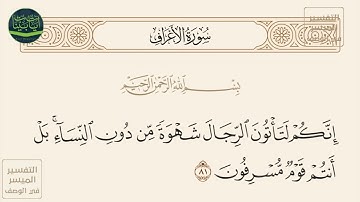 سُورَةُ الأَعْرَافِ
بِسْمِ اللَّهِ الرَّحْمَٰنِ الرَّحِيمِ
إِنَّكُمْ لَتَأْتُونَ الرِّجَالَ شَهْوَةً مِّن دُونِ النِّسَاءِ ۚ بَلْ
أَنتُمْ قَوْمٌ مُّسْرِفُونَ ٨١
التفسير
الميسر
في الوصف